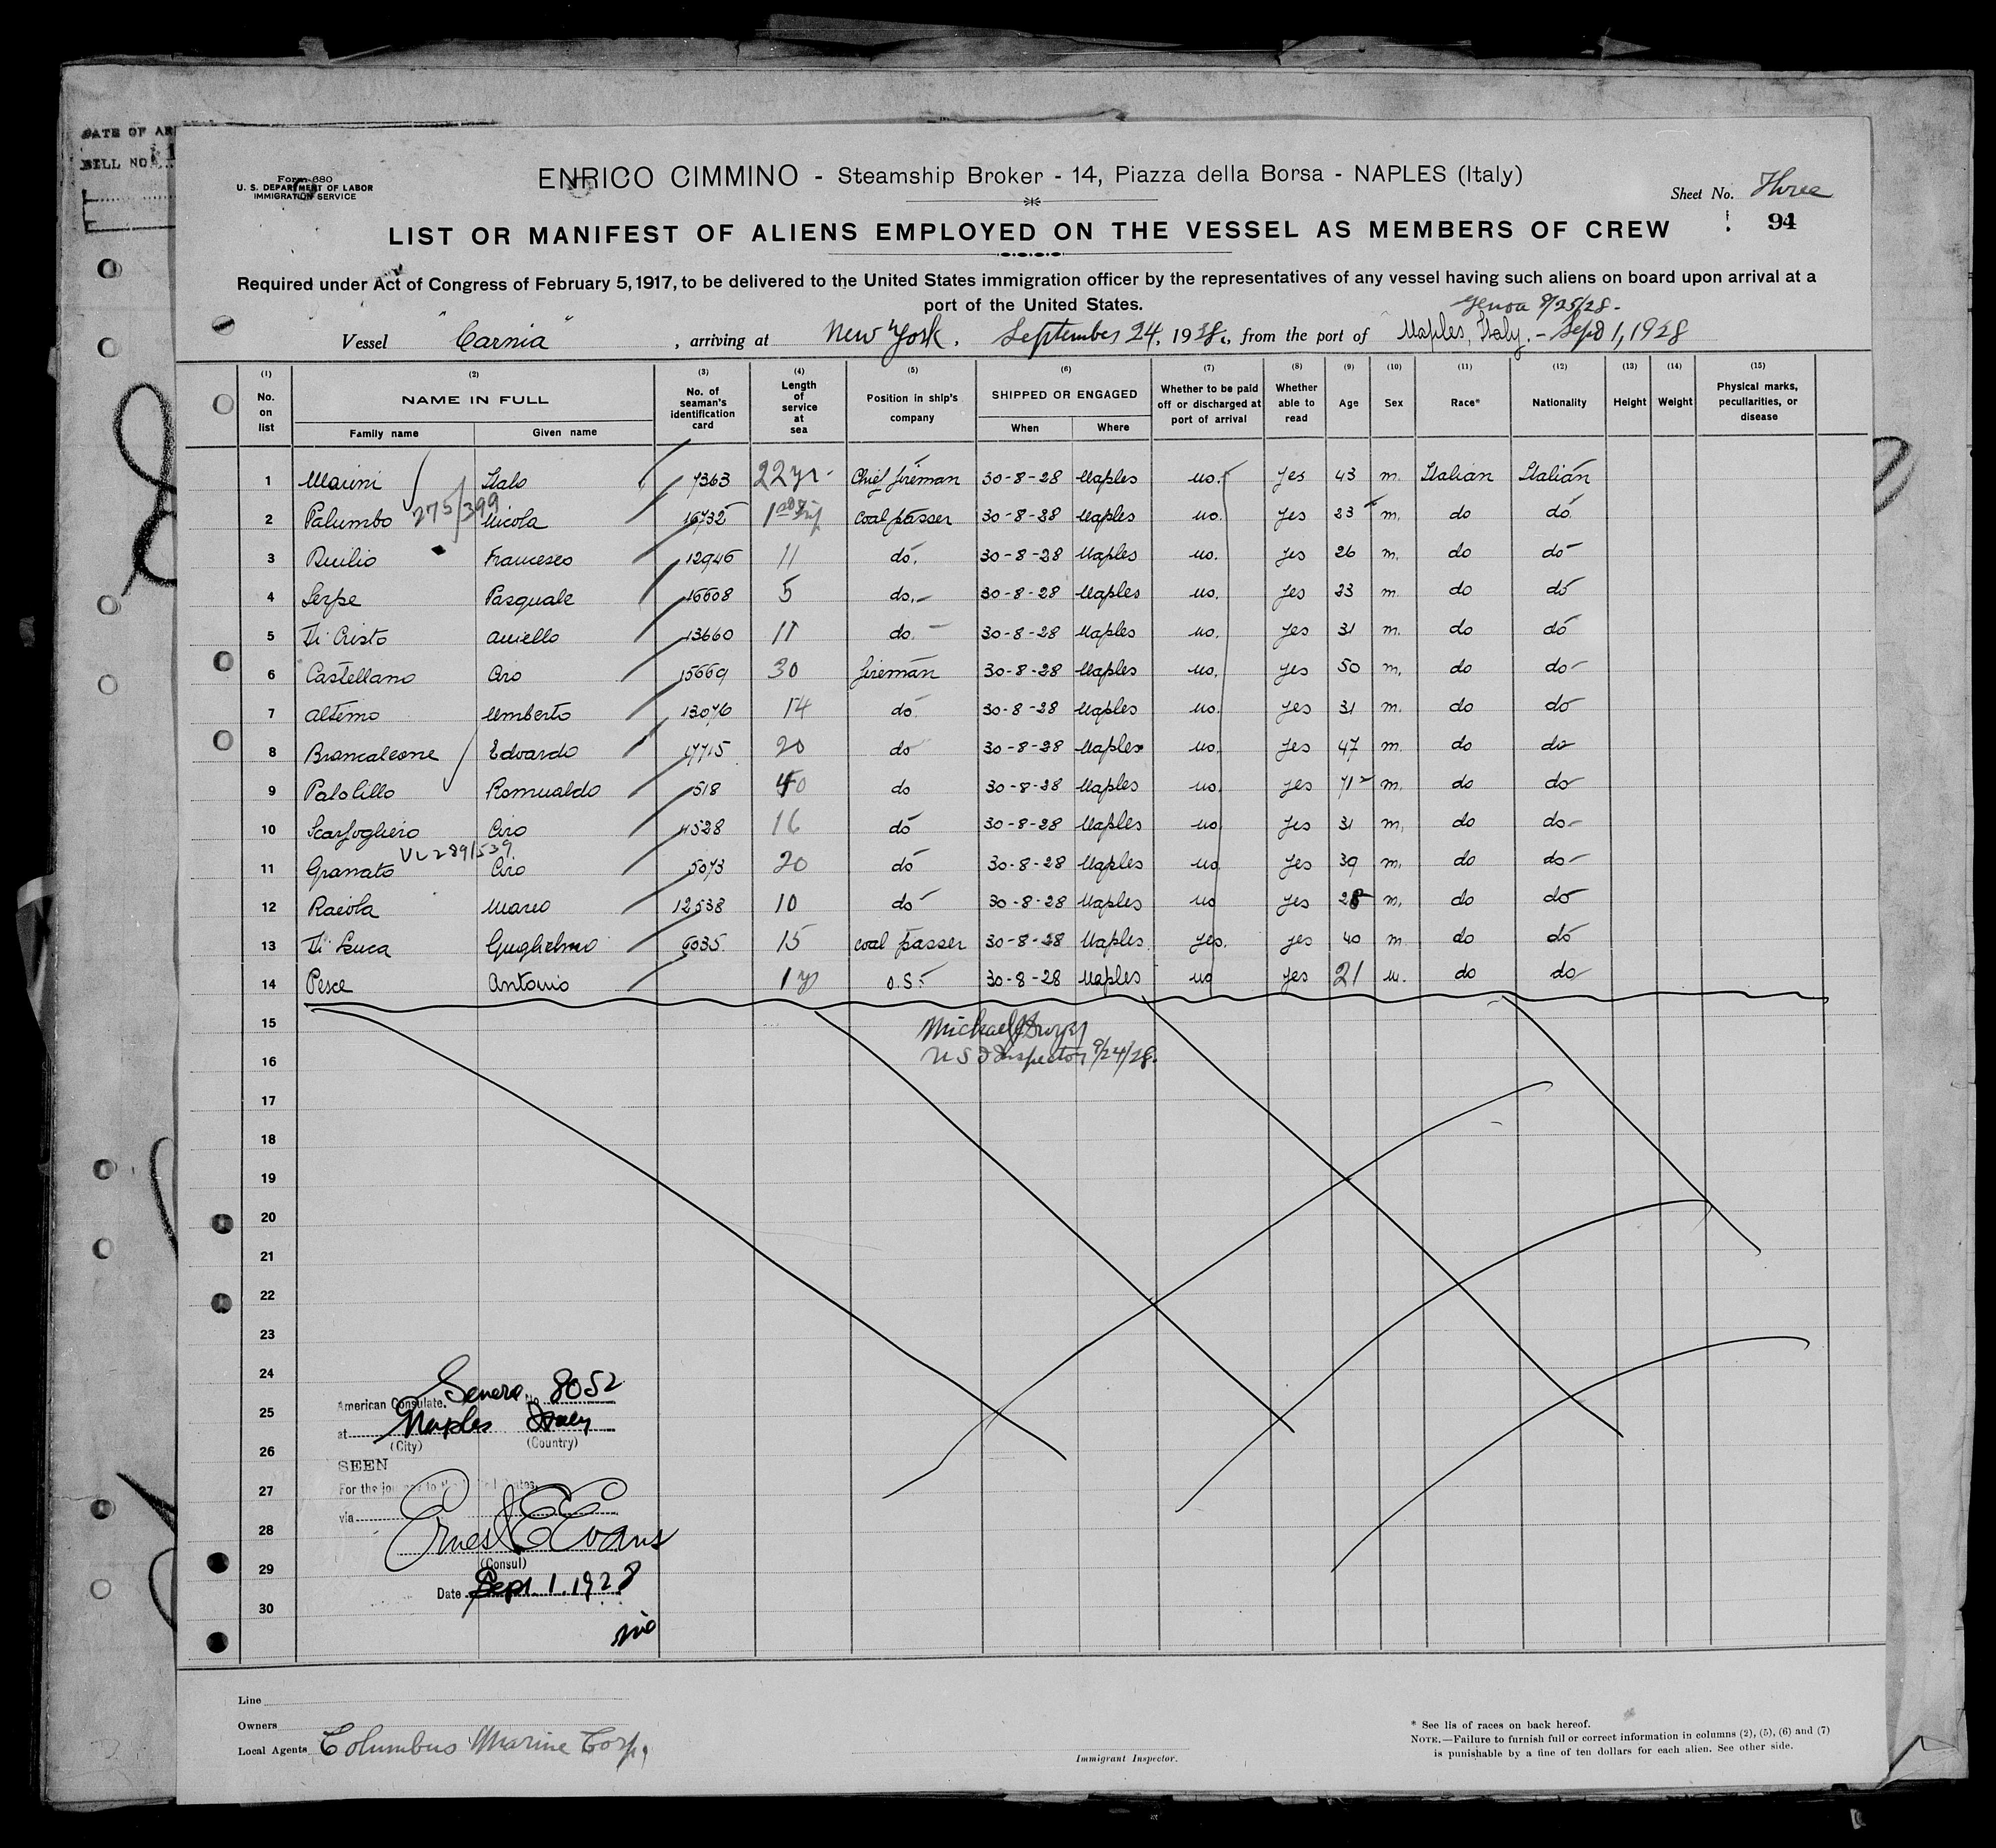 DATE OF AR
BILL NO.
Form 680
U. S. DEPARTMENT OF LABOR
IMMIGRATION SERVICE
ENRICO CIMMINO - Steamship Broker - 14, Piazza della Borsa - NAPLES (Italy)
Sheet No. Three
94
LIST OR MANIFEST OF ALIENS EMPLOYED ON THE VESSEL AS MEMBERS OF CREW
Required under Act of Congress of February 5, 1917, to be delivered to the United States immigration officer by the representatives of any vessel having such aliens on board upon arrival at a
port of the United States.
Genoa 9/25/28.
Vessel "Carnia", arriving at New York. September 24, 1928, from the port of Naples, Italy. - Sept 1, 1928
(1) (2) (3) (4) (5) (6) (7) (8) (9) (10) (11) (12) (13) (14) (15)
No. on list NAME IN FULL Family name Given name No. of seaman's identification card Length of service at sea Position in ship's company SHIPPED OR ENGAGED When Where Whether to be paid off or discharged at port of arrival Whether able to read Age Sex Race* Nationality Height Weight Physical marks, peculiarities, or disease
1 Marini Italo 7363 22 yr Chief fireman 30-8-28 Naples no. Yes 43 m. Italian Italian
2 Palumbo 275/399 Nicola 16732 1st trip Coal passer 30-8-28 Naples no. Yes 23 m. do do
3 Duilio Francesco 12946 11 do. 30-8-28 Naples no. Yes 26 m. do do
4 Serpe Pasquale 16608 5 do. 30-8-28 Naples no. Yes 23 m. do do
5 Di Cristo Aniello 13660 11 do. 30-8-28 Naples no. Yes 31 m. do do
6 Castellano Ciro 15669 30 fireman 30-8-28 Naples no. Yes 50 m. do do
7 Altemo Umberto 13076 14 do 30-8-28 Naples no. Yes 31 m. do do
8 Brancaleone Edoardo 17715 20 do 30-8-28 Naples no. Yes 47 m. do do
9 Palolillo Romualdo 518 40 do 30-8-28 Naples no. yes m. do do
10 Scarfogliero Ciro 11528 16 do 30-8-28 Naples no Yes 31 m. do do
VL 289/539
11 Granato Ciro 5073 20 do 30-8-28 Naples no Yes 39 m. do do
12 Raiola Mario 12538 10 do 30-8-28 Naples no Yes 28 m. do do
13 Di Luca Guglielmo 6035 15 coal passer 30-8-28 Naples. yes. yes 40 m do do
14 Pesce Antonio 1 y O.S. 30-8-28 Naples no yes 21 m. do do
15
Michael J
16
U S I Inspector 9/24/28.
17
18
19
20
21
22
23
24
American Consulate. Genera No. 8052
25
at Naples Italy
(City) (Country)
26
SEEN
27
For the journey to the United States,
via
28
Ernest E Evans
(Consul)
29
Date Sept. 1. 1928
30
Line
Owners
Local Agents Columbus Marine Corp.
Immigrant Inspector.
* See lis of races on back hereof.
NOTE.—Failure to furnish full or correct information in columns (2), (5), (6) and (7)
is punishable by a fine of ten dollars for each alien. See other side.